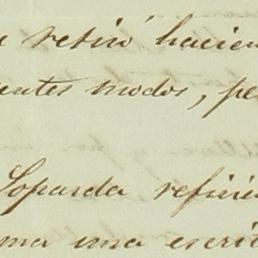 retiró hacien
entes modos, pe
Loparda refirié
ma una escri